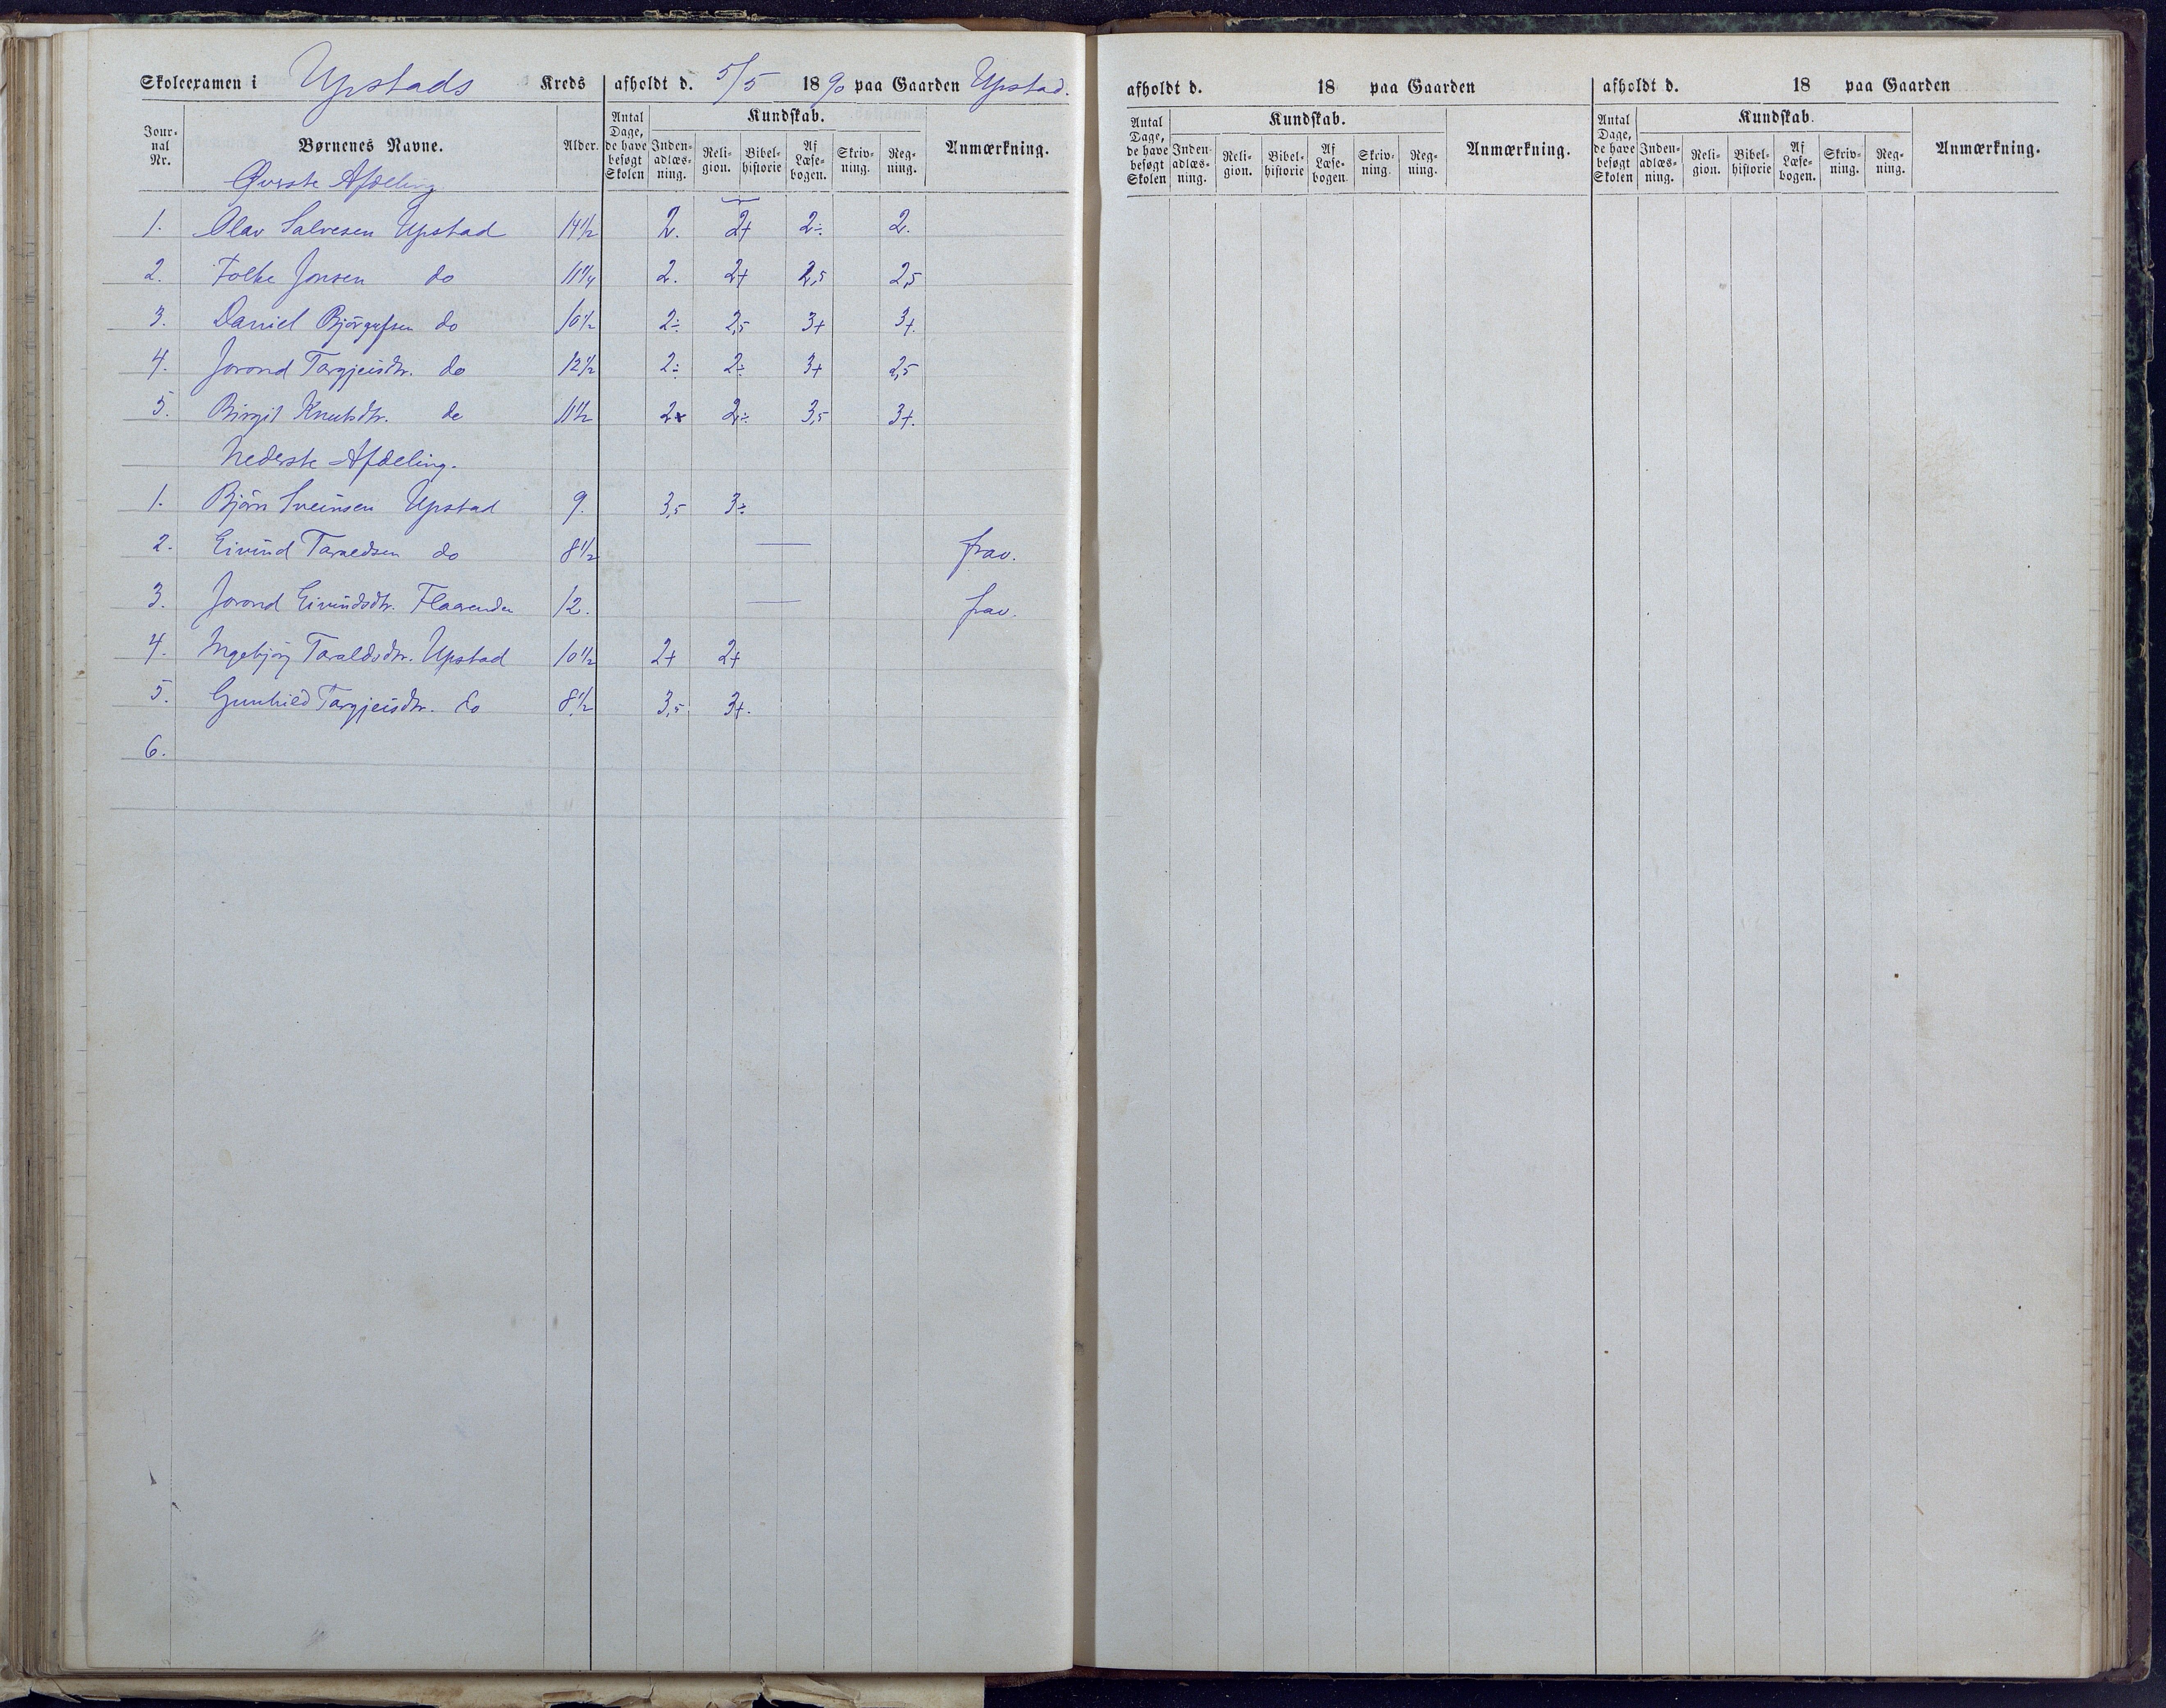 Skoleexamen i Upstads Kreds afholdt d. 5/5 1890 paa Gaarden Upstad.
Jour-nal Nr. Børnenes Navne. Alder. Antal Dage, de have besøgt Skolen Kundskab. Inden-adlæs-ning. Reli-gion. Bibel-historie Af Læse-bogen. Skriv-ning. Reg-ning. Anmærkning.
Øverste Afdeling
1. Olav Salvesen Upstad 14 1/2 2. 2+ 2÷ 2.
2. Folke Jonsen do 11 1/4 2. 2+ 2,5 2,5
3. Daniel Bjørgufsen do 10 1/2 2÷ 2,5 3+ 3+.
4. Jorond Targjeisdtr. do 12 1/2 2÷ 2÷ 3+ 2,5
5. Birgit Knutsdtr. do 11 1/2 2+ 2÷ 3,5 3+.
Nederste Afdeling.
1. Bjørn Sveinsen Upstad 9. 3,5 3÷
2. Eivind Taraldsen do 8 1/2 — frav.
3. Jorond Eivindsdtr. Flaarenden 12. — frav.
4. Ingebjørg Taraldsdtr. Upstad 10 1/2 2+ 2+
5. Gunhild Targjeisdtr. do 8 1/2 3,5 3+.
6.
afholdt d. 18 paa Gaarden
Antal Dage, de have besøgt Skolen Kundskab. Inden-adlæs-ning. Reli-gion. Bibel-historie Af Læse-bogen. Skriv-ning. Reg-ning. Anmærkning.
afholdt d. 18 paa Gaarden
Antal Dage, de have besøgt Skolen Kundskab. Inden-adlæs-ning. Reli-gion. Bibel-historie Af Læse-bogen. Skriv-ning. Reg-ning. Anmærkning.